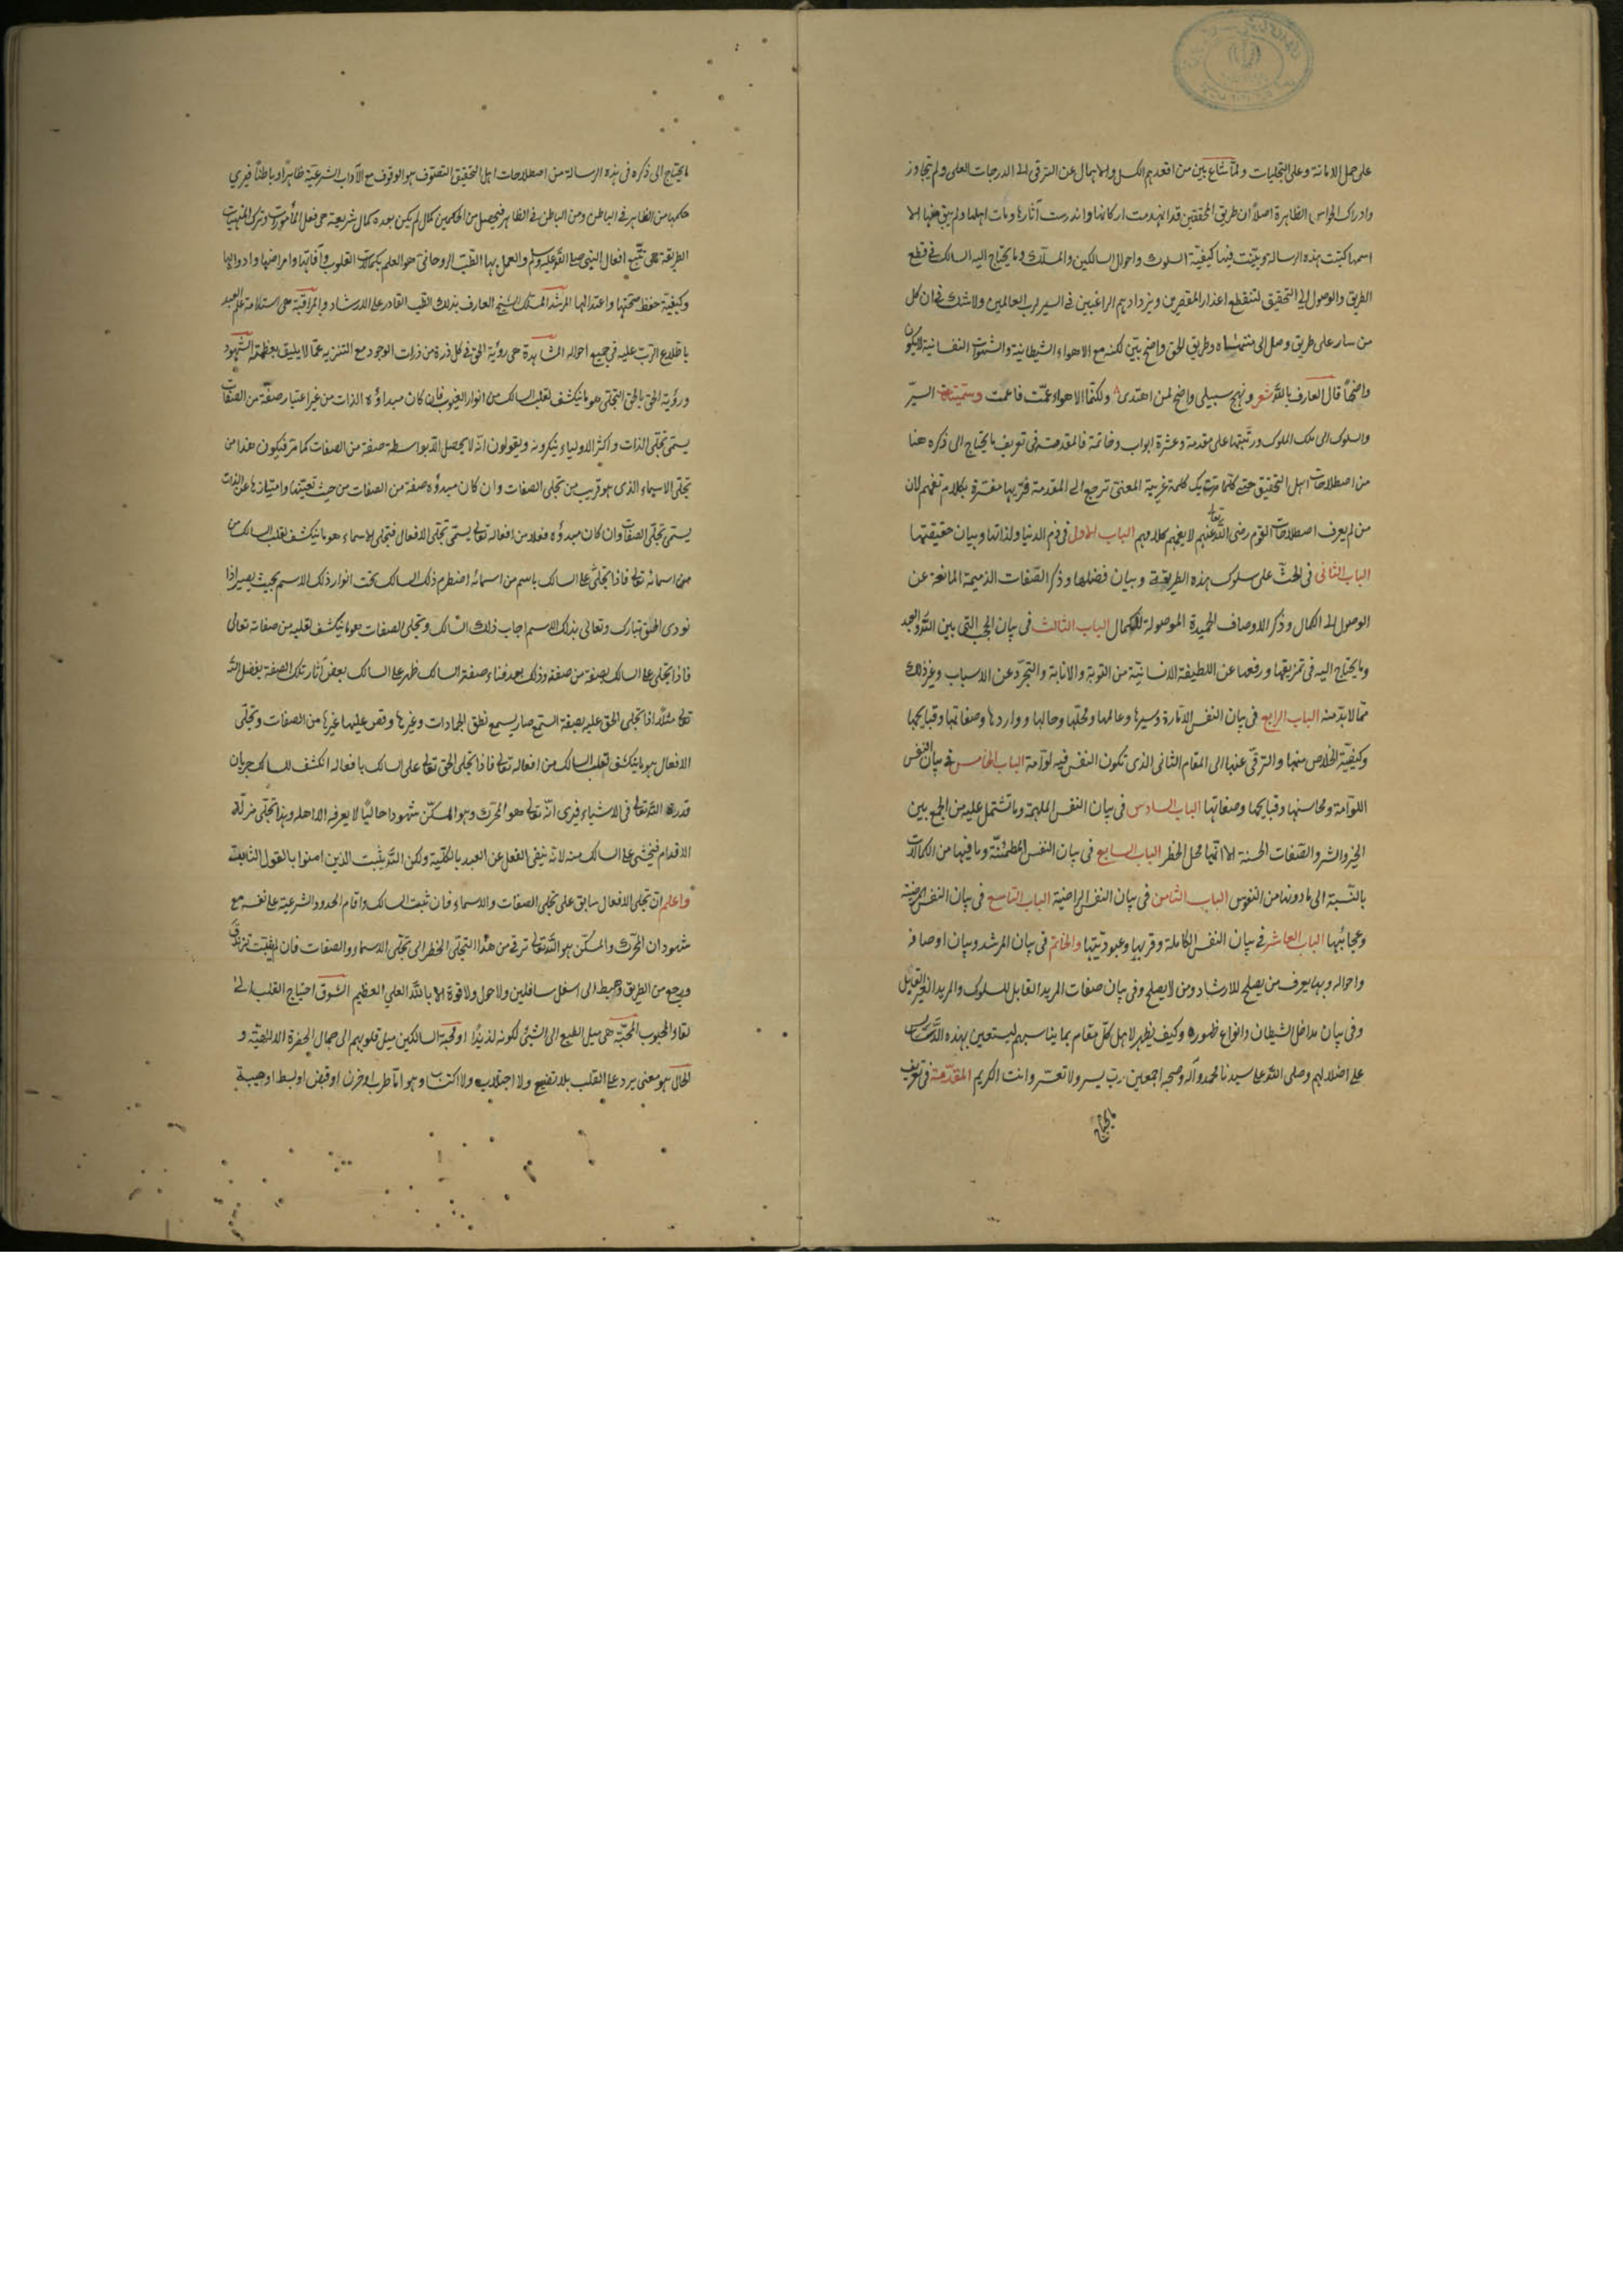 على حمل الامانة وعلى التجليات ولما شاع بين من اقعدهم الكسل والاهمال عن الترقى الى الدرجات العلى ولم تجاوز
وادراك الحواس الظاهرة اصلا ان طريق المحققين قد انهدمت اركانها واندرست آثارها ومات اهلها ولم يبق منها الا
اسمها كتبت هذه الرسالة وبينت فيها كيفية السلوك واحوال السالكين والمسلك وما يحتاج اليه السالك في قطع
الطريق والوصول الى التحقيق لتنقطع اعذار المقصرين ويزداد بهم الراغبين في السير لرب العالمين ولا شك في ان كل
من سار على طريق وصل الى منتهاه وطريق الحق واضح بين لكنه مع الاهواء الشيطانية والشهوات النفسانية لا يكون
واضحا قال العارف بالله شعر ونهج سبيلى واضح لمن اهتدى ولكنما الاهواء عمت فاعمت وسميتها السير
والسلوك الى ملك الملوك ورتبتها على مقدمة وعشرة ابواب وخاتمة فالمقدمة فى تعريف ما يحتاج الى ذكره هنا
من اصطلاحات اهل التحقيق حتى كلما مرت بك كلمة غريبة المعنى ترجع الى المقدمة فتريها مفسرة بكلام تفهم لان
من لم يعرف اصطلاحات القوم رضى الله تعالى عنهم لا يفهم كلامهم الباب الاول فى ذم الدنيا ولذاتها وبيان حقيقتها
الباب الثانى فى الحث على سلوك هذه الطريقة وبيان فضلها وذكر الصفات الذميمة المانعة عن
الوصول الى الكمال وذكر الاوصاف الحميدة الموصولة للكمال الباب الثالث فى بيان الحجب التى بين الله والعبد
وما يحتاج اليه فى تمزيقها ورفعها عن اللطيفة الانسانية من التوبة والانابة والتجرد عن الاسباب وغير ذلك
مما لابد منه الباب الرابع فى بيان النفس الامارة وسيرها وعالمها ومحلها وحالها وواردها وصفاتها وقبايحها
وكيفية الخلاص منها والترقى عنها الى المقام الثانى الذى تكون النفس فيه لوامة الباب الخامس فى بيان النفس
اللوامة ومحاسنها وقبايحها وصفاتها الباب السادس فى بيان النفس الملهمة وما تشتمل عليه من الجمع بين
الخير والشر والصفات الحسنة الا انها محل الخطر الباب السابع فى بيان النفس المطمئنة وما فيها من الكمالات
بالنسبة الى ما دونها من النفوس الباب الثامن فى بيان النفس الراضية الباب التاسع فى بيان النفس المرضية
وعجائبها الباب العاشر فى بيان النفس الكاملة وقربها وعبوديتها والخاتمة فى بيان المرشد وبيان اوصافه
واحواله وبها يعرف من يصلح للارشاد ومن لا يصلح وفى بيان صفات المريد القابل للسلوك والمريد الغير القابل
وفى بيان مداخل الشيطان وانواع ظهوره وكيف يظهر لاهل كل مقام بما يناسبهم ليستعين بهذه
على اضلالهم وصلى الله على سيدنا محمد وآله وصحبه اجمعين رب يسر ولا تعسر وانت الكريم المقدمة فى تعريف
ما يحتاج
ما يحتاج الى ذكره فى هذه الرسالة من اصطلاحات اهل التحقيق التصوف هو الوقوف مع الآداب الشرعية ظاهرا وباطنا فيرى
حكمها من الظاهر فى الباطن ومن الباطن فى الظاهر فيحصل من الحكمين كمال لم يكن بعده كمال شريعة هى فعل المأمورات وترك المنهيات
الطريقة هى تتبع افعال النبى صلى الله عليه وسلم والعمل بها الطب الروحانى هو العلم بكمالات القلوب وآفاتها وامراضها وادوائها
وكيفية حفظ صحتها واعتدالها المرشد المسلك الشيخ العارف بذلك الطب القادر على الارشاد والمراقبة هى استدامة علم العبد
باطلاع الرب عليه فى جميع احواله المشاهدة هى رؤية الحق فى كل ذرة من ذرات الوجود مع التنزيه عما لا يليق بعظمته الشهود
ورؤية الحق بالحق التجلى هو ما ينكشف لقلب السالك من انوار الغيوب فان كان مبداؤه الذات من غير اعتبار صفة من الصفات
يسمى تجلى الذات واكثر الاولياء ينكرونه ويقولون انه لا يحصل الا بواسطة صفة من الصفات كما مر فيكون هذا من
تجلى الاسماء الذى هو قريب من تجلى الصفات وان كان مبدؤه صفة من الصفات من حيث تعينها وامتيازها عن الذات
يسمى تجلى الصفات وان كان مبدؤه فعلا من افعاله تعالى يسمى تجلى الافعال فتجلى الاسماء هو ما ينكشف لقلب السالك من
من اسمائه تعالى فاذا تجلى على السالك باسم من اسمائه اضطرم ذلك السالك تحت انوار ذلك الاسم بحيث يصير اذا
نودى الحق تبارك وتعالى بذلك الاسم اجاب ذلك السالك وتجلى الصفات هو ما ينكشف لقلبه من صفاته تعالى
فاذا تجلى على السالك بصفة من صفة وذلك بعد فناء صفة السالك ظهر على السالك بعض آثار تلك الصفة بفضل الله
تعالى مثلا اذا تجلى الحق عليه بصفة السمع صار يسمع نطق الجمادات وغيرها وقس عليها غيرها من الصفات وتجلى
الافعال هو ما ينكشف لقلب السالك من افعاله تعالى فاذا تجلى الحق تعالى على السالك بافعاله انكشف للسالك جريان
قدرة الله تعالى فى الاشياء فيرى انه تعالى هو المحرك وهو المسكن شهودا حاليا لا يعرفه الا اهله وهذا تجلى مزلة
الاقدام فيخشى على السالك منه لانه ينفى الفعل عن العبد بالكلية ولكن الله يثبت الذين امنوا بالقول الثابت
واعلم ان تجلى الافعال سابق على تجلى الصفات والاسماء فان ثبت السالك واقام الحدود الشرعية على نفسه مع
شهود ان المحرك والمسكن هو الله تعالى ترقى من هذا التجلى الخطر الى تجلى الاسماء والصفات فان لم يثبت تزندق
ورجع من الطريق وهبط الى اسفل سافلين ولا حول ولا قوة الا بالله العلى العظيم الشوق احتياج القلب الى
لقاء المحبوب المحبة هى ميل الطبع الى الشئ لكونه لذيذا او محبة السالكين ميل قلوبهم الى جمال الحضرة الالهية و
الحال هو معنى يرد على القلب بلا تصنع ولا اجتلاب ولا اكتساب وهو اما طرب او حزن او قبض او بسط او هيبة